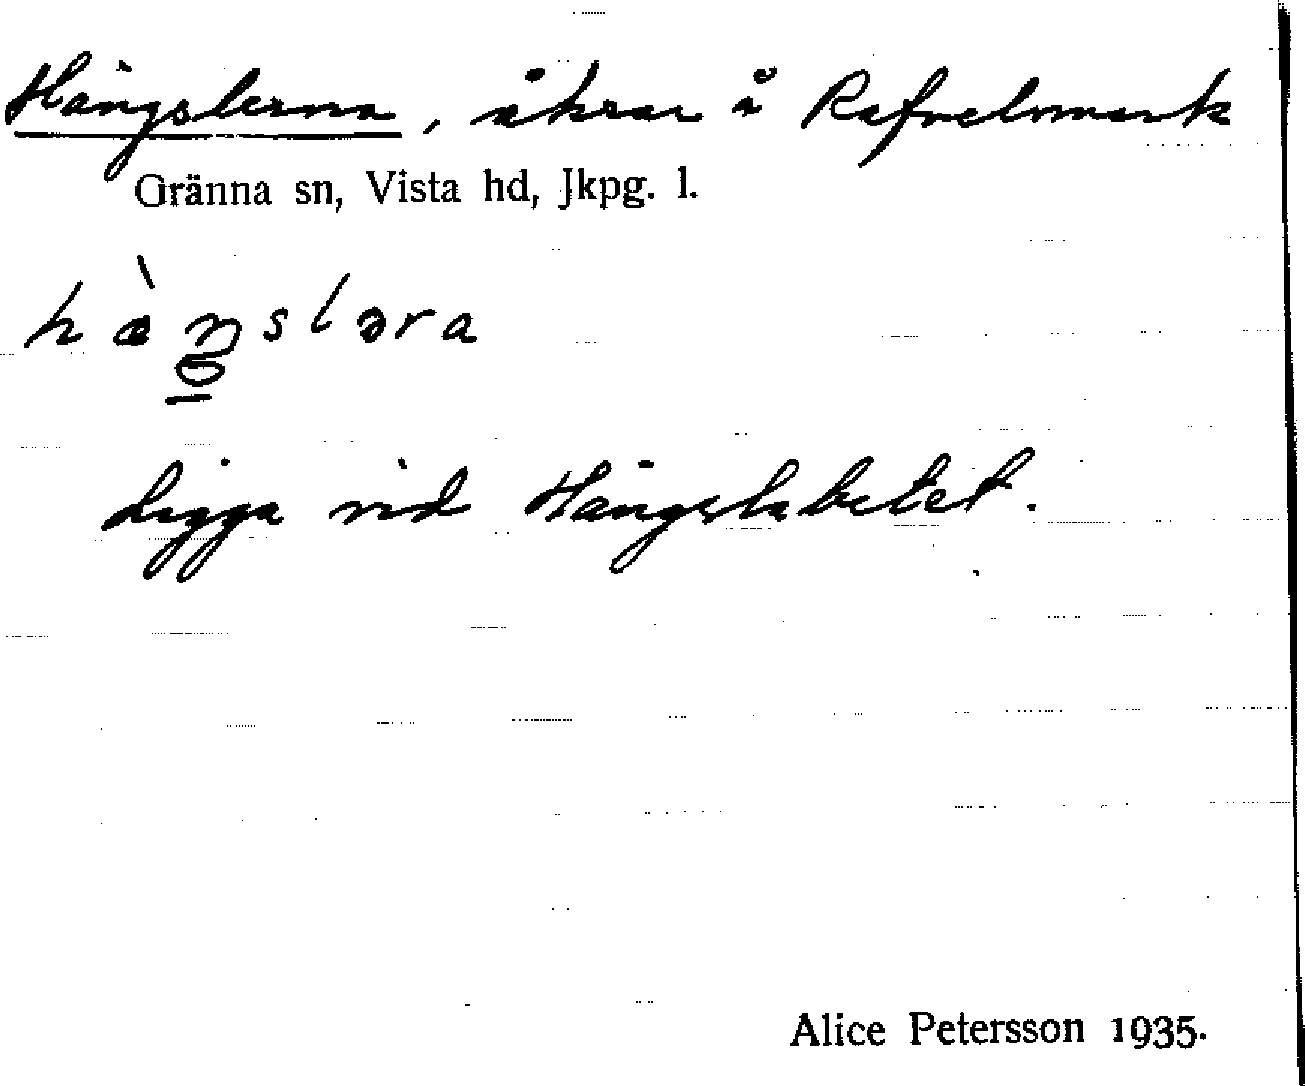 Hängslerna, åkrar å Rafvelsmark
Gränna sn, Vista hd, Jkpg. l.
hæ̀ŋslǝra
Ligga vid Hängslabetet.
Alice Petersson 1935.